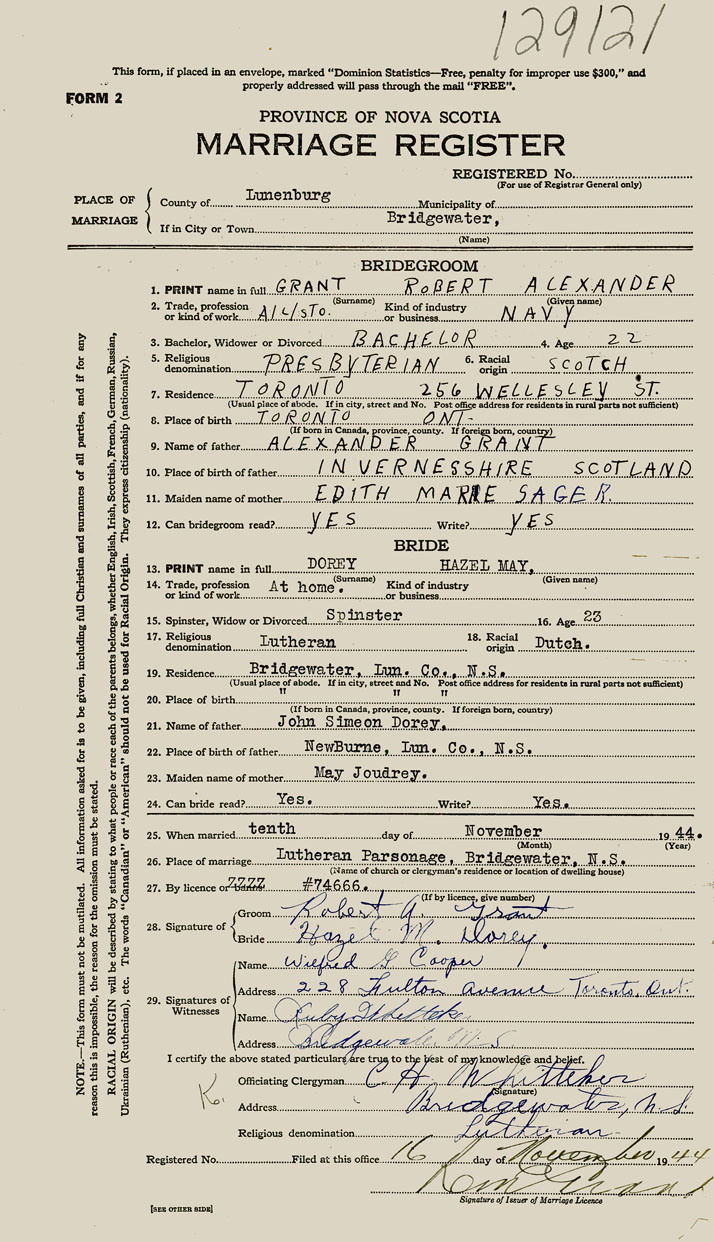 129121
This form, if placed in an envelope, marked "Dominion Statistics—Free, penalty for improper use $300," and
properly addressed will pass through the mail "FREE".
FORM 2
PROVINCE OF NOVA SCOTIA
MARRIAGE REGISTER
REGISTERED No.
(For use of Registrar General only)
PLACE OF MARRIAGE
County of Lunenburg Municipality of
If in City or Town Bridgewater,
(Name)
BRIDEGROOM
1. PRINT name in full GRANT ROBERT ALEXANDER
(Surname) (Given name)
2. Trade, profession or kind of work A/L/STO. Kind of industry or business NAVY
3. Bachelor, Widower or Divorced BACHELOR 4. Age 22
5. Religious denomination PRESBYTERIAN 6. Racial origin SCOTCH.
7. Residence TORONTO 256 WELLESLEY ST.
(Usual place of abode. If in city, street and No. Post office address for residents in rural parts not sufficient)
8. Place of birth TORONTO ONT.
(If born in Canada, province, county. If foreign born, country)
9. Name of father ALEXANDER GRANT
10. Place of birth of father INVERNESSHIRE SCOTLAND
11. Maiden name of mother EDITH MARIE SAGER
12. Can bridegroom read? YES Write? YES
BRIDE
13. PRINT name in full DOREY HAZEL MAY,
(Surname) (Given name)
14. Trade, profession or kind of work At home. Kind of industry or business
15. Spinster, Widow or Divorced Spinster 16. Age 23
17. Religious denomination Lutheran 18. Racial origin Dutch.
19. Residence Bridgewater, Lun. Co., N.S.
(Usual place of abode. If in city, street and No. Post office address for residents in rural parts not sufficient)
20. Place of birth " " "
(If born in Canada, province, county. If foreign born, country)
21. Name of father John Simeon Dorey,
22. Place of birth of father NewBurne, Lun. Co., N.S.
23. Maiden name of mother May Joudrey.
24. Can bride read? Yes. Write? Yes.
25. When married tenth day of November 1944.
(Month) (Year)
26. Place of marriage Lutheran Parsonage, Bridgewater, N.S.
(Name of church or clergyman's residence or location of dwelling house)
27. By licence or #74666.
(If by licence, give number)
28. Signature of
Groom Robert A. Grant
Bride Hazel M. Dorey.
29. Signatures of Witnesses
Name Wilfred G Cooper
Address 228 Fulton Avenue Toronto, Ont.
Name Ruby
Address Bridgewater N.S
I certify the above stated particulars are true to the best of my knowledge and belief.
Officiating Clergyman C. H. Whitteker
(Signature)
Address Bridgewater, N.S
Religious denomination Lutheran
Registered No. Filed at this office 16 day of November 1944
Signature of Issuer of Marriage Licence
[SEE OTHER SIDE]
NOTE.—This form must not be mutilated. All information asked for is to be given, including full Christian and surnames of all parties, and if for any
reason this is impossible, the reason for the omission must be stated.
RACIAL ORIGIN will be described by stating to what people or race each of the parents belongs, whether English, Irish, Scottish, French, German, Russian,
Ukrainian (Ruthenian), etc. The words "Canadian" or "American" should not be used for Racial Origin. They express citizenship (nationality).